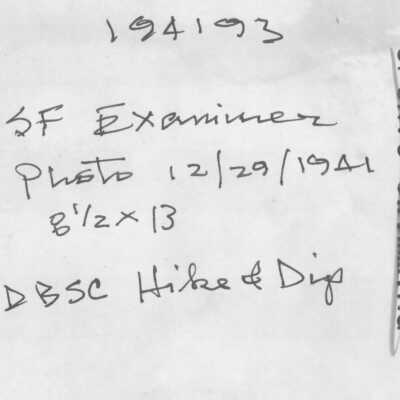 194193
SF Examiner
Photo 12/29/1941
8 1/2 x 13
DBSC Hike & Dip